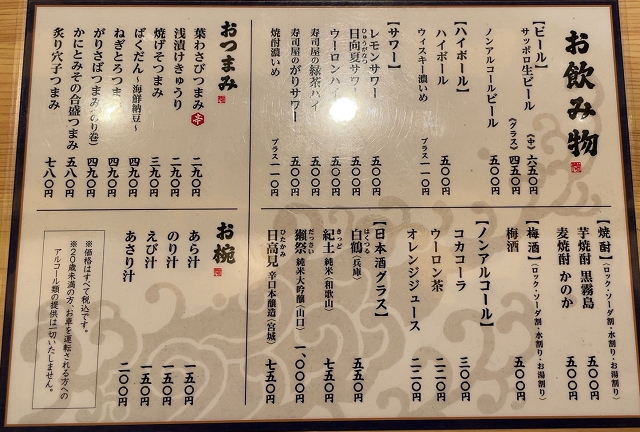 お飲み物
【ビール】
サッポロ生ビール (中) 六五〇円
(グラス) 四五〇円
ノンアルコールビール 五〇〇円
【ハイボール】
ハイボール 五〇〇円
ウィスキー濃いめ プラス一一〇円
【サワー】
レモンサワー 五〇〇円
日向夏サワー 五〇〇円
ひゅうがなつ
ウーロンハイ 五〇〇円
寿司屋の緑茶ハイ 五〇〇円
寿司屋のがりサワー 五〇〇円
焼酎濃いめ プラス一一〇円
おつまみ
葉わさびつまみ 辛 二九〇円
浅漬けきゅうり 二九〇円
焼げそつまみ 三九〇円
ばくだん～海鮮納豆～ 四九〇円
ねぎとろつまみ 四九〇円
がりさばつまみ(のり巻) 四九〇円
かにとみその合盛つまみ 五八〇円
炙り穴子つまみ 七八〇円
【焼酎】(ロック・ソーダ割・水割り・お湯割り)
芋焼酎 黒霧島 五〇〇円
麦焼酎 かのか 五〇〇円
【梅酒】(ロック・ソーダ割・水割り・お湯割り)
梅酒 五〇〇円
【ノンアルコール】
コカコーラ 三〇〇円
ウーロン茶 二二〇円
オレンジジュース 二二〇円
【日本酒グラス】
はくつる
白鶴(兵庫) 五五〇円
きっど
紀土 純米(和歌山) 七五〇円
だっさい
獺祭 純米大吟醸(山口) 一、〇〇〇円
ひたかみ
日高見 辛口本醸造(宮城) 七五〇円
お椀
あら汁 一五〇円
のり汁 一五〇円
えび汁 一五〇円
あさり汁 二〇〇円
※価格はすべて税込です。
※20歳未満の方、お車を運転される方への
アルコール類の提供は一切いたしません。